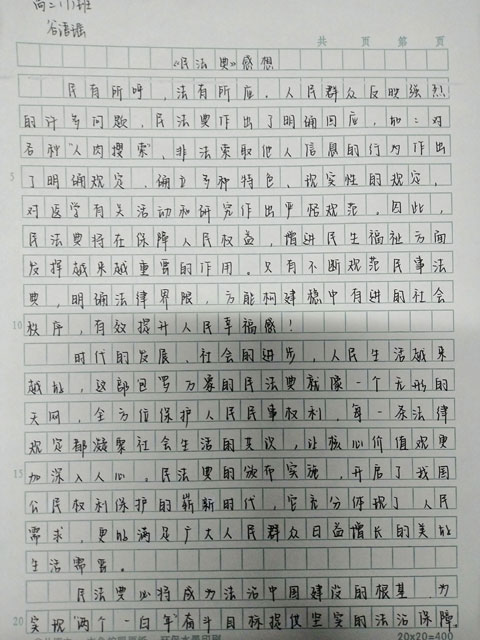 高二(1)班
谷语瑶
共 页 第 页
《民法典》感想
民有所呼，法有所应。人民群众反映强烈
的许多问题，民法典作出了明确回应，如：对
各种"人肉搜索"、非法索取他人信息的行为作出
5 了明确规定，确立多种特色、现实性的规定，
对医学有关活动和研究作出严格规范。因此，
民法典将在保障人民权益，增进民生福祉方面
发挥越来越重要的作用。只有不断规范民事法
典，明确法律界限，方能构建稳中有进的社会
10 秩序，有效提升人民幸福感！
时代的发展、社会的进步，人民生活越来
越好，这部包罗万象的民法典就像一个无形的
天网，全方位保护人民民事权利，每一条法律
规定都凝聚社会生活的真议，让核心价值观更
15 加深入人心。民法典的颁布实施，开启了我国
公民权利保护的崭新时代，它充分体现了人民
需求，更能满足广大人民群众日益增长的美好
生活需要。
民法典必将成为法治中国建设的根基，为
20 实现"两个一百年"奋斗目标提供坚实的法治保障。
20×20=400